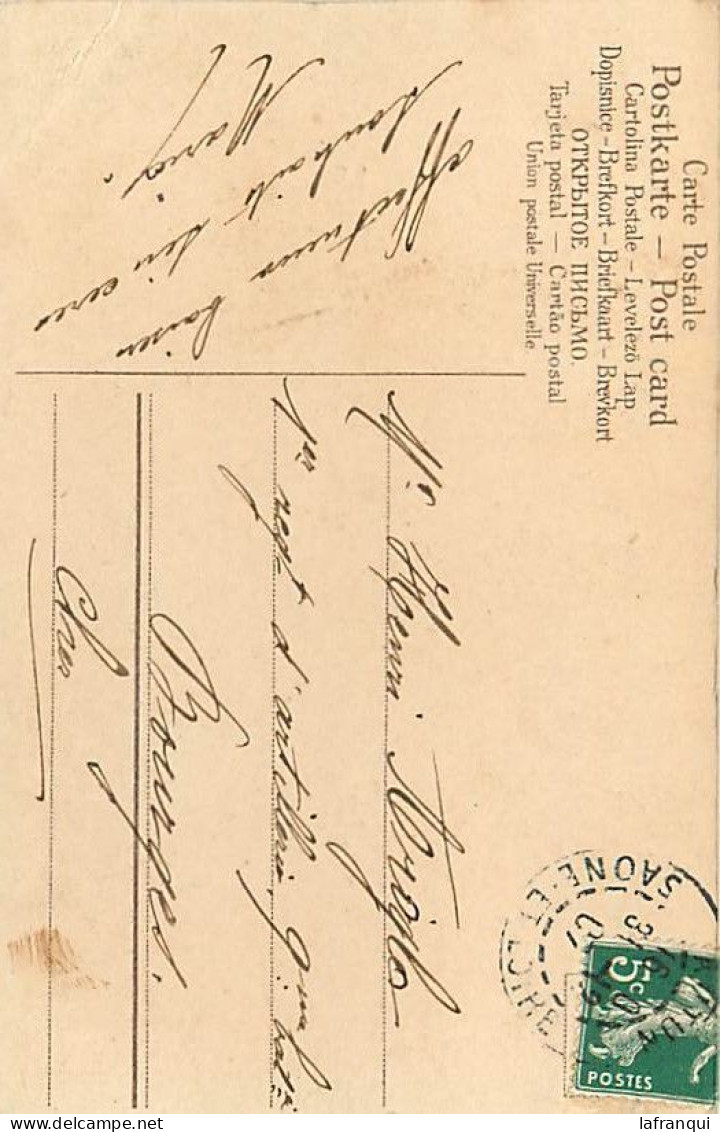 Carte Postale
Postkarte — Post card
Cartolina Postale – Levelezö Lap
Dopisnice – Brefkort – Briefkaart – Brevkort
ОТКРЫТОЕ ПИСЬМО.
Tarjeta postal — Cartão postal
Union postale Universelle
baiser
souhaits
Maria.
Mr Henri
1er regt d'artillerie
Bourges.
Cher
AUTUN
SAONE-ET-LOIRE
5c
POSTES
lafranqui